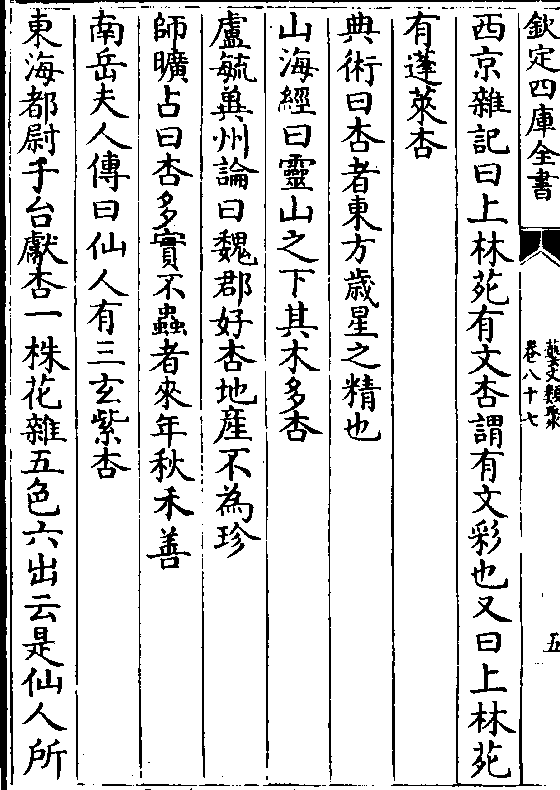 欽定四庫全書
藝文類聚
卷八十七
五
西京雜記曰上林苑有文杏謂有文彩也又曰上林苑
有蓬萊杏
典術曰杏者東方歲星之精也
山海經曰靈山之下其木多杏
盧毓兾州論曰魏郡好杏地産不為珍
師曠占曰杏多實不蟲者來年秋禾善
南岳夫人傳曰仙人有三玄紫杏
東海都尉于台獻杏一株花雜五色六出云是仙人所